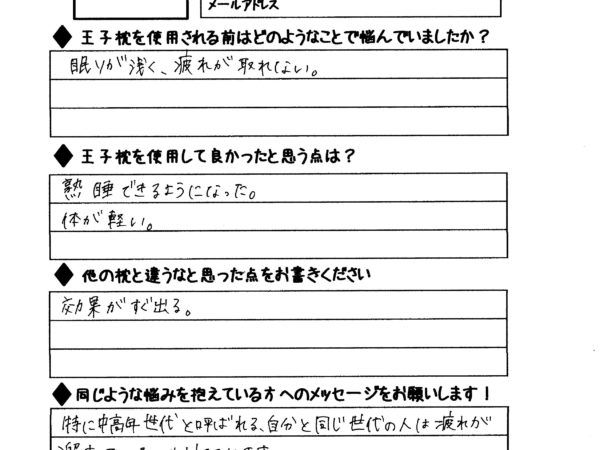 メールアドレス
◆ 王子枕を使用される前はどのようなことで悩んでいましたか？
眠りが浅く、疲れが取れない。
◆ 王子枕を使用して良かったと思う点は？
熟睡できるようになった。
体が軽い。
◆ 他の枕と違うなと思った点をお書きください
効果がすぐ出る。
◆ 同じような悩みを抱えている方へのメッセージをお願いします！
特に中高年世代と呼ばれる、自分と同じ世代の人は疲れが